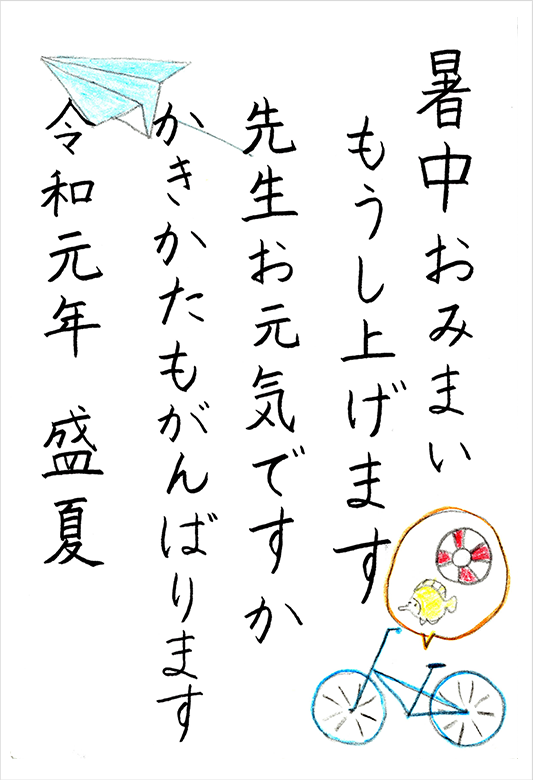 暑中おみまい
もうし上げます
先生お元気ですか
かきかたもがんばります
令和元年　盛夏